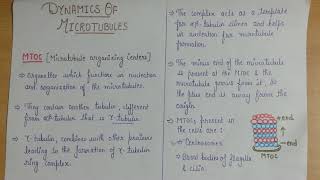 DYNAMICS OF
MICROTUBULES
MTOC [Microtubule organizing Centers]
→ Organelles which function in nucleation
and organization of the microtubules.
→ They contain another tubulin, different
from αβ-tubulin that is γ-tubulin.
→ γ-tubulin, combines with other proteins
leading to the formation of γ-tubulin
ring complex.
→ The complex acts as a template
for αβ-tubulin dimers and helps
in nucleation for microtubule
formation.
→ The minus end of the microtubule
is present at the MTOC & the
microtubule grows from it, so
the plus end is away from the
origin.
→ MTOCs present in
the cells are:
→ Centrosomes
→ Basal bodies of flagella
& cilia.
+end
-end
MTOC